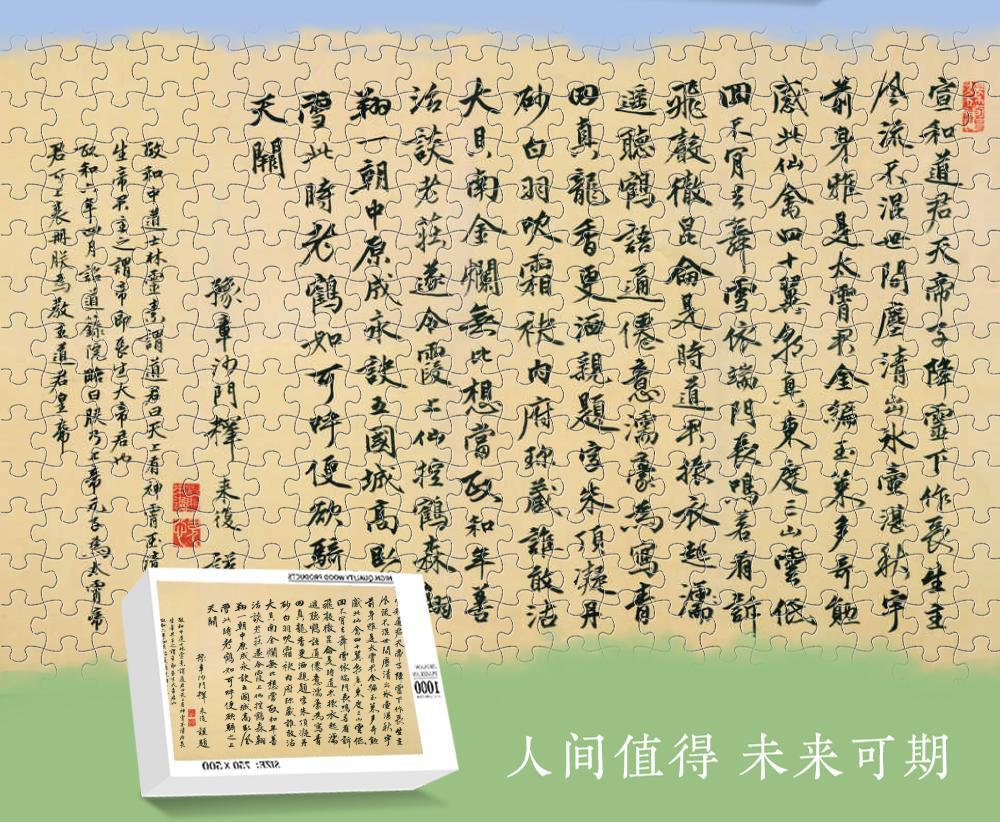 宣和道君天帝子降靈下作長生主
風流不混世間塵清出冰壺湛秋宇
前身雅是太霄君金編玉策多奇勉
感此仙禽四十翼來真東度三山雲低
回不肯去舞雪依端門長鳴若有訴
飛聲徹昆侖是時道君攘衣起
遥聽鶴語通僊意濡豪為寫青
田真龍香更洒親題字朱頂凝丹
砂白羽吹霜袂内府珍藏誰敢沽
大貝南金爛無比想當政和年善
治談老莊遂令霞上仙控鶴森翱
翔一朝中原成永訣五國城高
雪此時老鶴如可呼便欲騎
天關
豫章沙門釋来復
政和中道士林靈素謂道君曰天上有神霄玉清
生帝君主之謂帝即長生大帝君也
政和六年四月詔道籙院略曰朕乃上帝元子為太霄帝
君可上表冊朕為教主道君皇帝
HIGH QUALITY WOOD PRODUCTS
1000
SIZE: 750 X 500
人间值得 未来可期